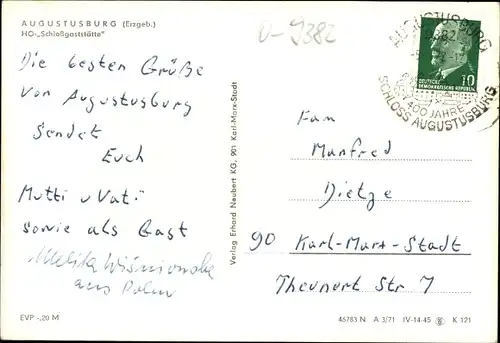 AUGUSTUSBURG (Erzgeb.)
HO-„Schloßgaststätte"
Die besten Grüße
von Augustusburg
sendet
Euch
Mutti u Vati
sowie als Gast
Melitta
aus Polen
EVP -,20 M
Verlag Erhard Neubert KG, 901 Karl-Marx-Stadt
0-9382
AUGUSTUSBURG
9382
400 JAHRE
SCHLOSS AUGUSTUSBURG
10
DEUTSCHE
DEMOKRATISCHE REPUBLIK
Fam
Manfred
Dietze
90 Karl-Marx-Stadt
Str 7
46783 N A 3/71 IV-14-45 K 121